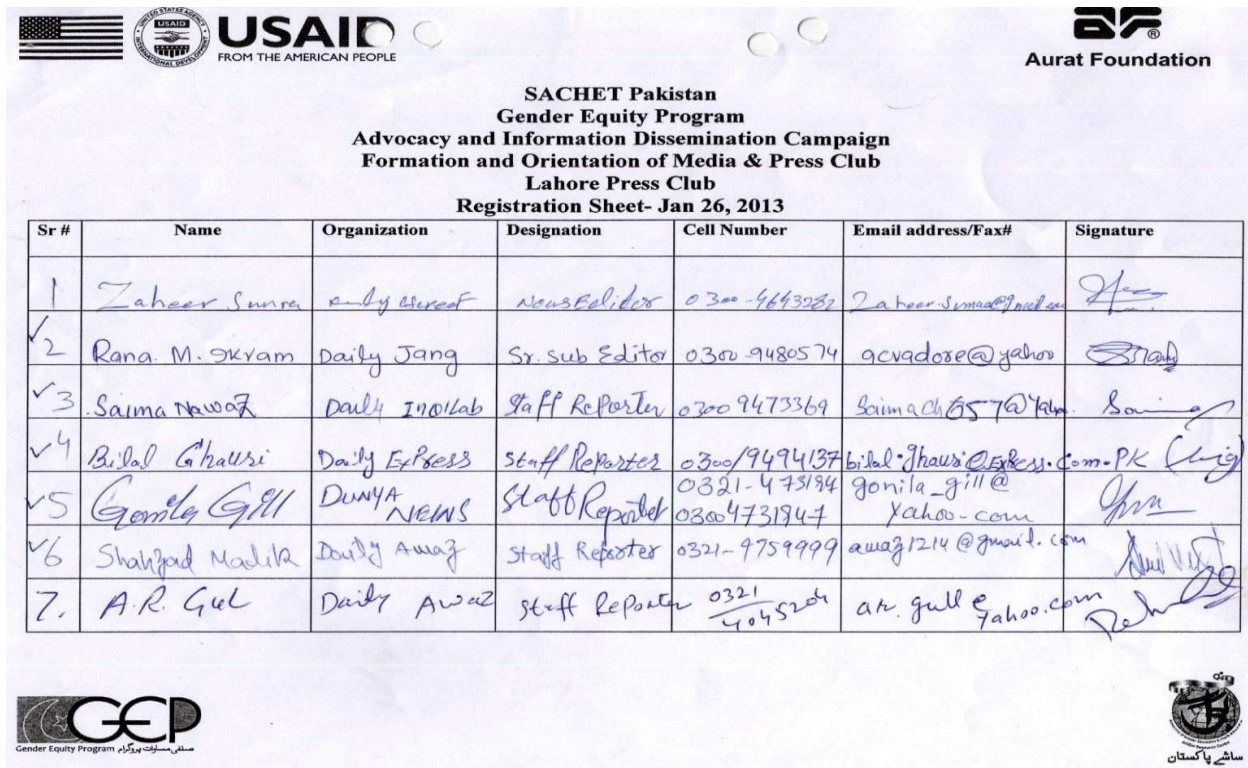 UNITED STATES AGENCY
USAID
INTERNATIONAL DEVELOPMENT
USAID
FROM THE AMERICAN PEOPLE
Aurat Foundation
SACHET Pakistan
Gender Equity Program
Advocacy and Information Dissemination Campaign
Formation and Orientation of Media & Press Club
Lahore Press Club
Registration Sheet- Jan 26, 2013
Sr # Name Organization Designation Cell Number Email address/Fax# Signature
1 Zaheer News Editor 0300-4643282
2 Rana. M. Ikram Daily Jang Sr. Sub Editor 0300-9480574 acvadore@yahoo
3 Saima Nawaz Daily Inqilab Staff Reporter 0300 9473369
4 Bilal Ghausi Daily Express Staff Reporter 0300/9494137 bilal.ghausi@express.com.pk
5 Gonila Gill DUNYA NEWS Staff Reporter 0321-473194 03004731947 gonila_gill@yahoo.com
6 Shahzad Madlik Daily Awaz Staff Reporter 0321-9759999 awaz1214@gmail.com
7. A.R. Gul Daily Awaz Staff Reporter 0321 4045204 ar.gull@yahoo.com
GEP
Gender Equity Program صنفی مساوات پروگرام
ساشے پاکستان